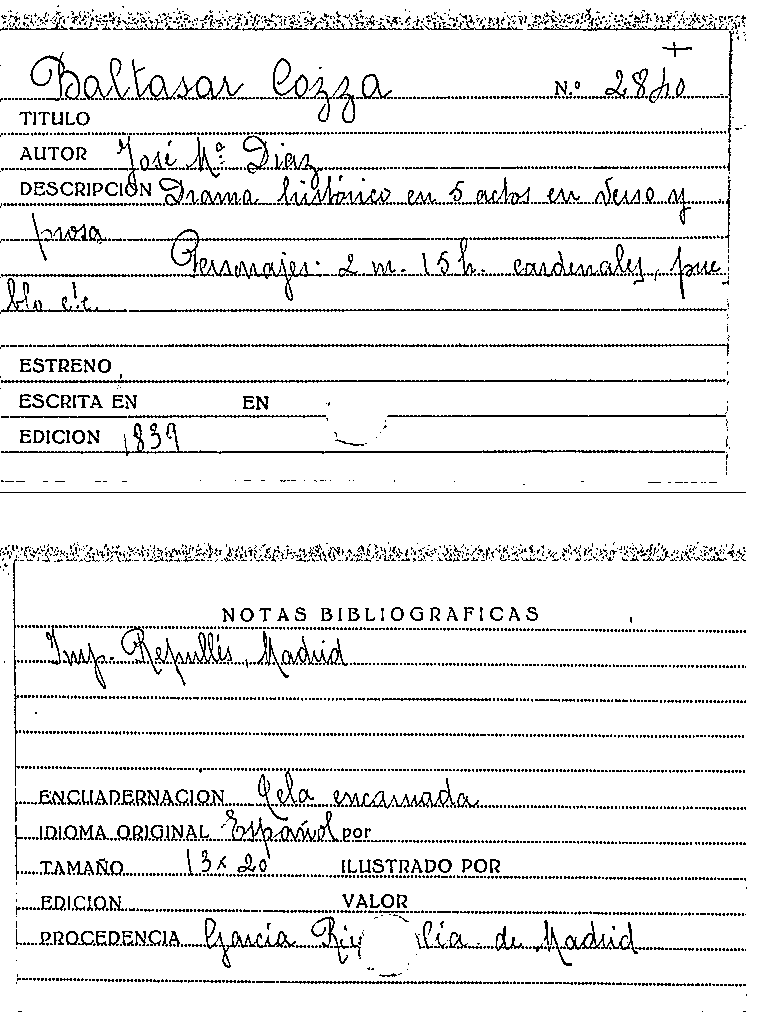 Baltasar Cozza N.º 2840
TITULO
AUTOR José Mª Diaz
DESCRIPCIÓN Drama histórico en 5 actos en verso y
prosa
Personajes: 2 m. 15 h. cardenales, pue
blo etc.
ESTRENO
ESCRITA EN EN
EDICION 1839
NOTAS BIBLIOGRAFICAS
Imp. Repullés, Madrid
ENCUADERNACION Tela encarnada
IDIOMA ORIGINAL Español por
TAMAÑO 13 x 20 ILUSTRADO POR
EDICION VALOR
PROCEDENCIA García de Madrid